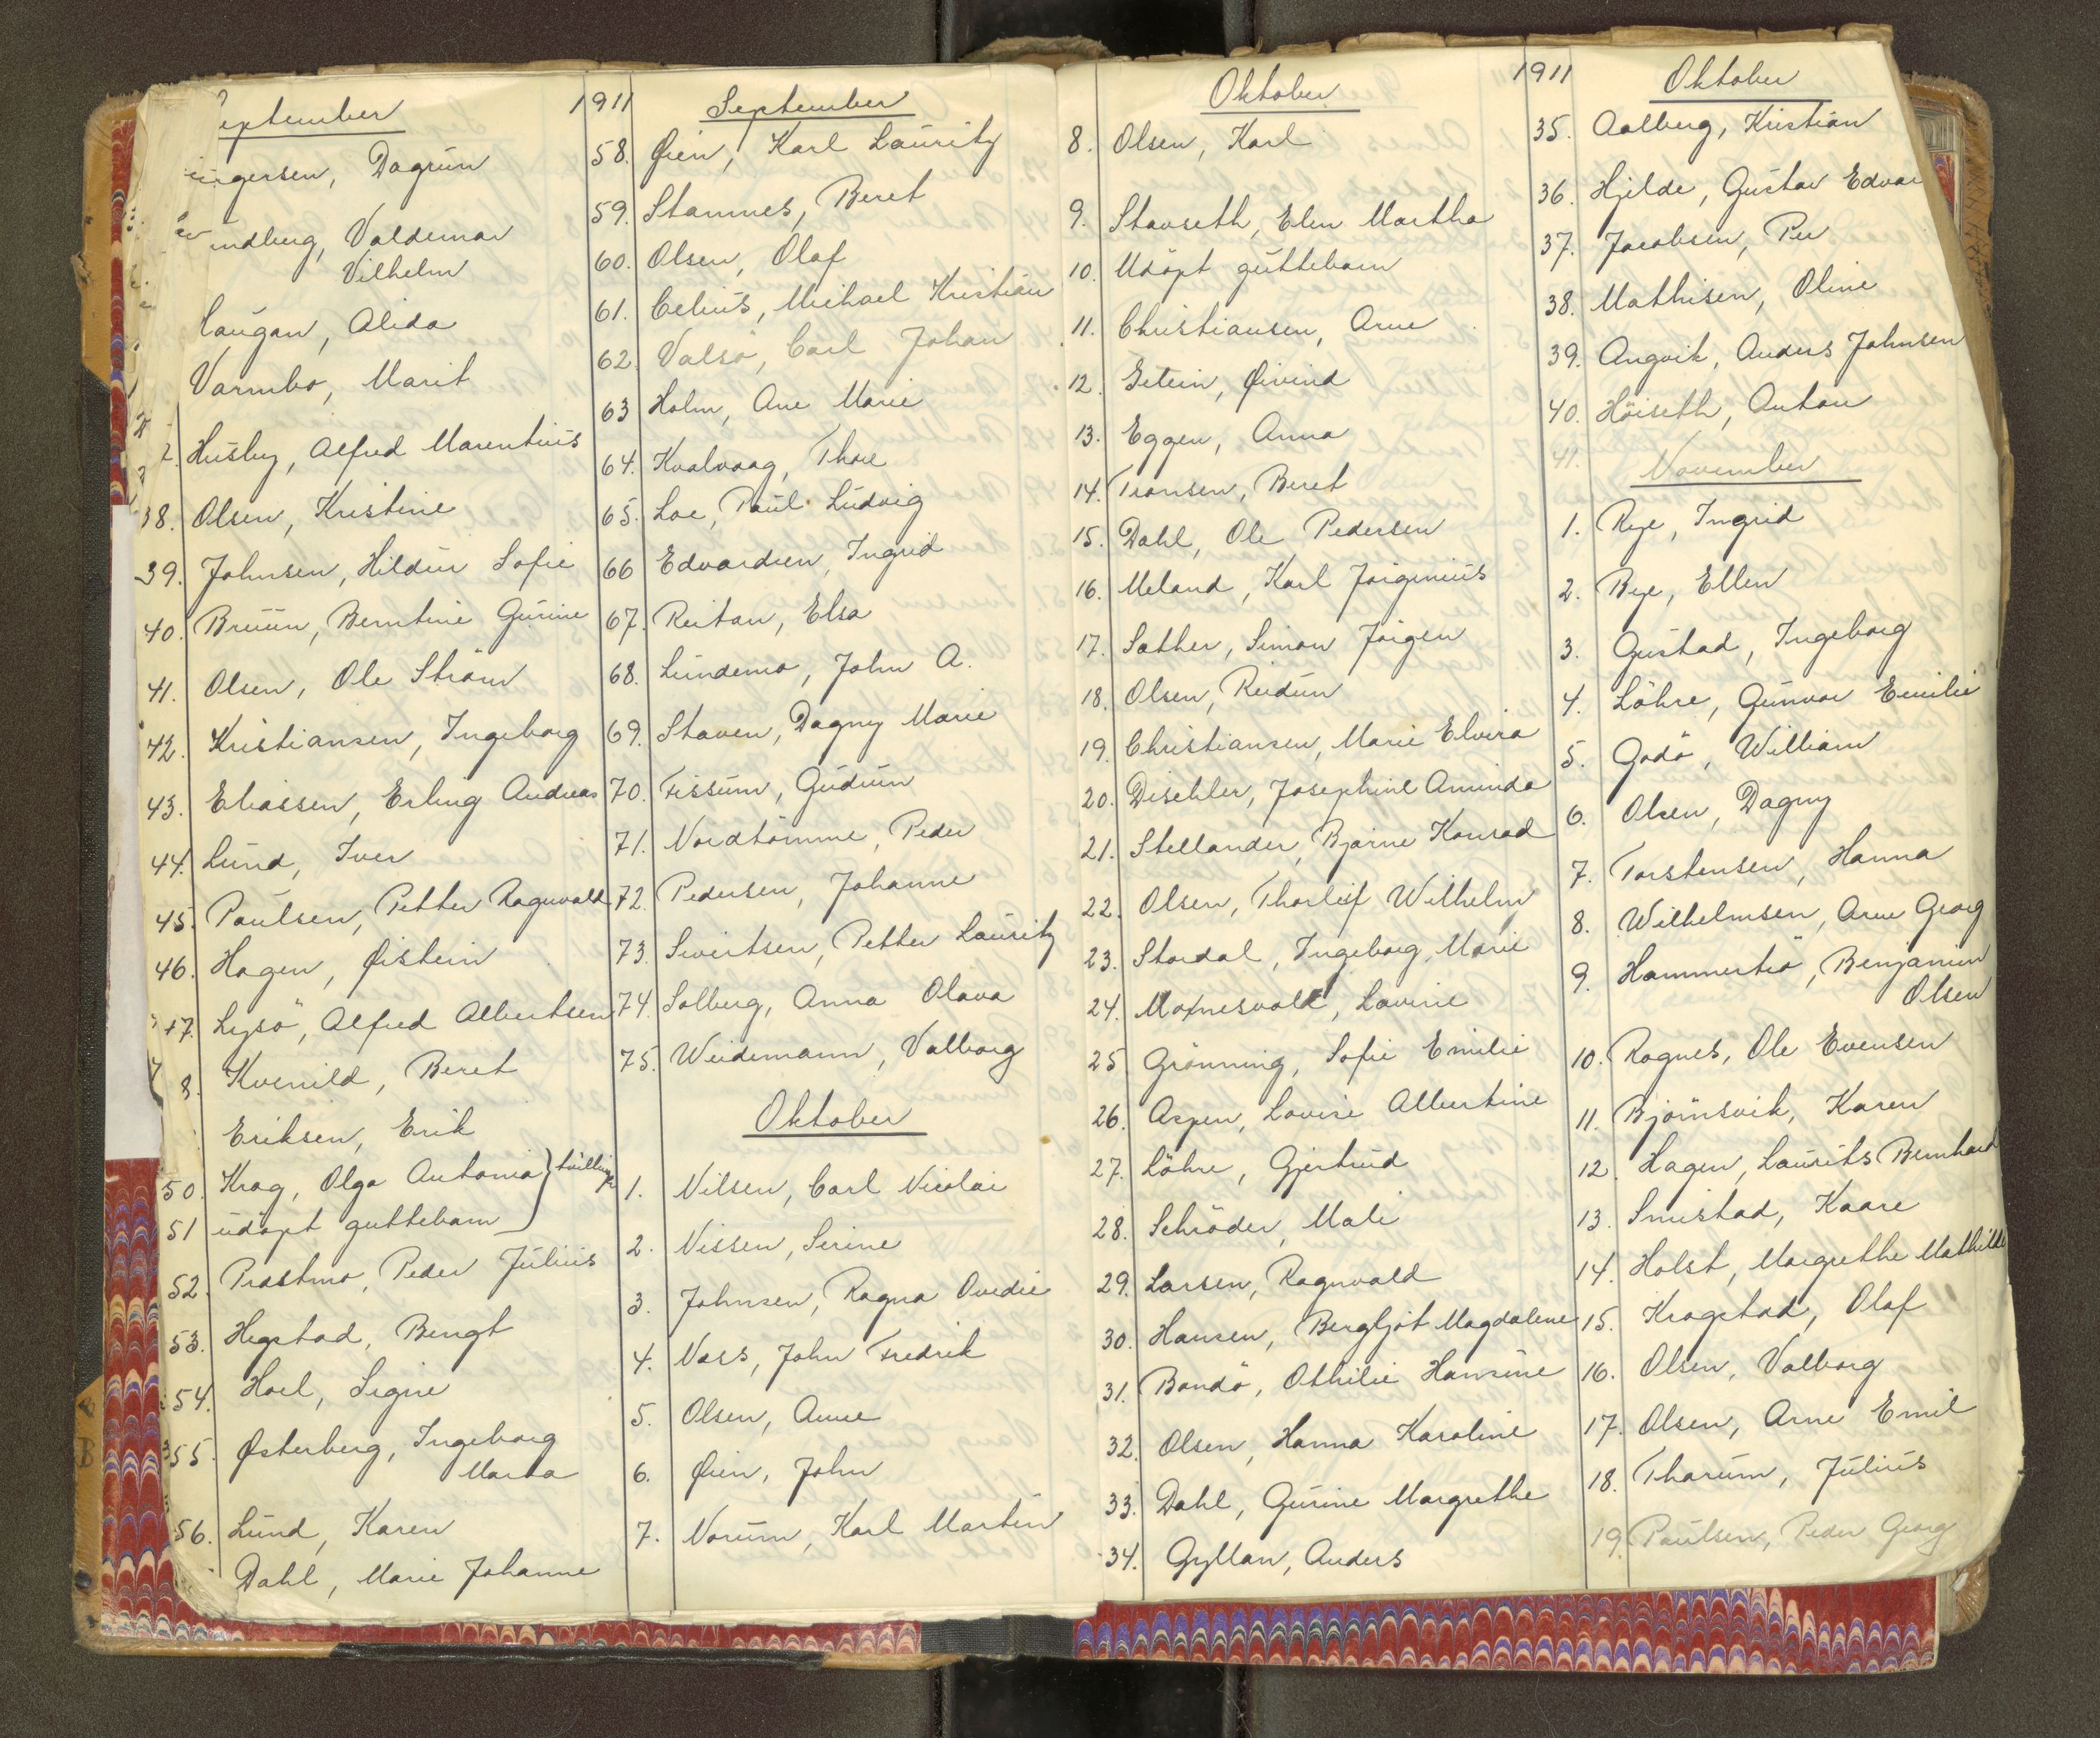 eptember
1911
gersen, Dagrun
ndberg, Valdemar
Vilhelm
Haugan, Alida
Varmbo, Marit
Husby, Alfred Marentius
38. Olsen, Kristine
39. Johnsen, Hildur Sofie
40. Bruun, Berntine Gurine
41. Olsen, Ole Ström
42. Kristiansen, Ingeborg
43. Eliassen, Erling Andreas
44. Lund, Iver
45. Paulsen, Petter Ragnvald
46. Hagen, Øistein
47. Lysö, Alfred Albertsen
8. Kvenild, Beret
Eriksen, Erik
50. Krag, Olga Antonia } tvillinger
51 udöpt guttebarn
52. Præstmo, Peder Julius
53. Hegstad, Bengt
54. Hoel, Signe
55. Østerberg, Ingeborg
Marta
56. Lund, Karen
Dahl, Marie Johanne
September
58. Øien, Karl Lauritz
59. Stamnes, Beret
60. Olsen, Olaf
61. Celius, Michael Kristian
62 Valsö, Carl Johan
63 Holm, Ane Marie
64. Kvalvaag, Thore
65. Loe, Paul Ludvig
66 Edvardsen, Ingrid
67. Reitan, Elsa
68. Lundemo, John A.
69. Staven, Dagny Marie
70. Fissum, Gudrun
71. Nordtömme, Peder
72. Pedersen, Johanne
73. Sivertsen, Petter Lauritz
74. Solberg, Anna Olava
75. Weidemann, Valborg
Oktober
1. Nilsen, Carl Nicolai
2. Nissen, Sirine
3. Johnsen, Ragna Ovedie
4. Voss, John Fredrik
5. Olsen, Anne
6. Øien, John
7. Norum, Karl Martin
Oktober
1911
8. Olsen, Karl
9. Stavseth, Elen Martha
10. Udöpt guttebarn
11. Christiansen, Arne
12. Sitein, Øivind
13. Eggen, Anna
14. Transen, Beret
15. Dahl, Ole Pedersen
16. Meland, Karl Jörginius
17. Sæther, Simon Jörgen
18. Olsen, Reidun
19. Christiansen, Marie Elvira
20. Dischler, Josephine Aminda
21. Stellander, Bjarne Konrad
22. Olsen, Thorleif Wilhelm
23. Stordal, Ingeborg Marie
24. Moxnesvold, Lovise
25 Grönning, Sofie Emilie
26. Aspen, Lovise Albertine
27. Löhre, Gjertrud
28. Schröder, Mali
29. Larsen, Ragnvald
30. Hansen, Bergljot Magdalene
31. Bondö, Othilie Hansine
32. Olsen, Hanna Karoline
33. Dahl, Gurine Margrethe
34. Gyllan, Anders
Oktober
35. Aalberg, Kristian
36. Hjelde, Gustav Edvar
37. Jacobsen, Per
38. Mathisen, Oline
39. Angvik, Anders Johnsen
40. Höiseth, Anton
41.
November
1. Rye, Ingrid
2. Bye, Ellen
3. Gustad, Ingeborg
4. Löhre, Gunvor Emilie
5. Godö, William
6. Olsen, Dagny
7. Torstensen, Hanna
8. Wilhelmsen, Arne Georg
9. Hammertrö, Benjamin
Olsen
10. Rognes, Ole Evensen
11. Björnsvik, Karen
12. Hagen, Laurits Bernhard
13. Smistad, Kaare
14. Holst, Margrethe Mathilde
15. Kragstad, Olaf
16. Olsen, Valborg
17. Olsen, Arne Emil
18. Tharum, Julius
19. Paulsen, Peder Georg